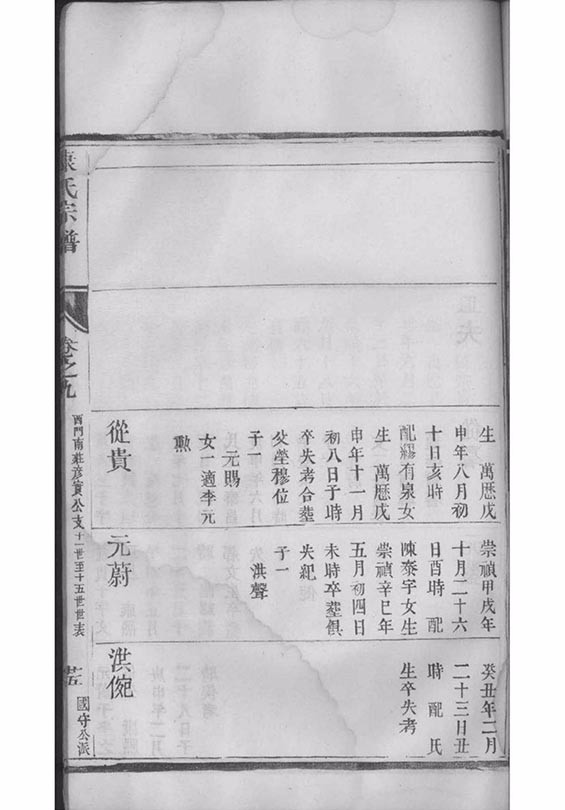 生 萬厯戊
申年八月初
十日亥時
配繆有泉女
生 萬厯戊
申年十一月
初八日子時
卒失考合塟
父塋穆位
子一
元賜
女一適李元
勲
從貴
崇禎甲戌年
十月二十六
日酉時 配
陳泰宇女生
崇禎辛巳年
五月初四日
未時卒塟俱
失紀
子一
洪聲
元蔚
癸丑年二月
二十三日丑
時 配 氏
生卒失考
洪
康氏宗譜
卷之九
西門南莊彥實公支十一世至十五世世表
國守公派